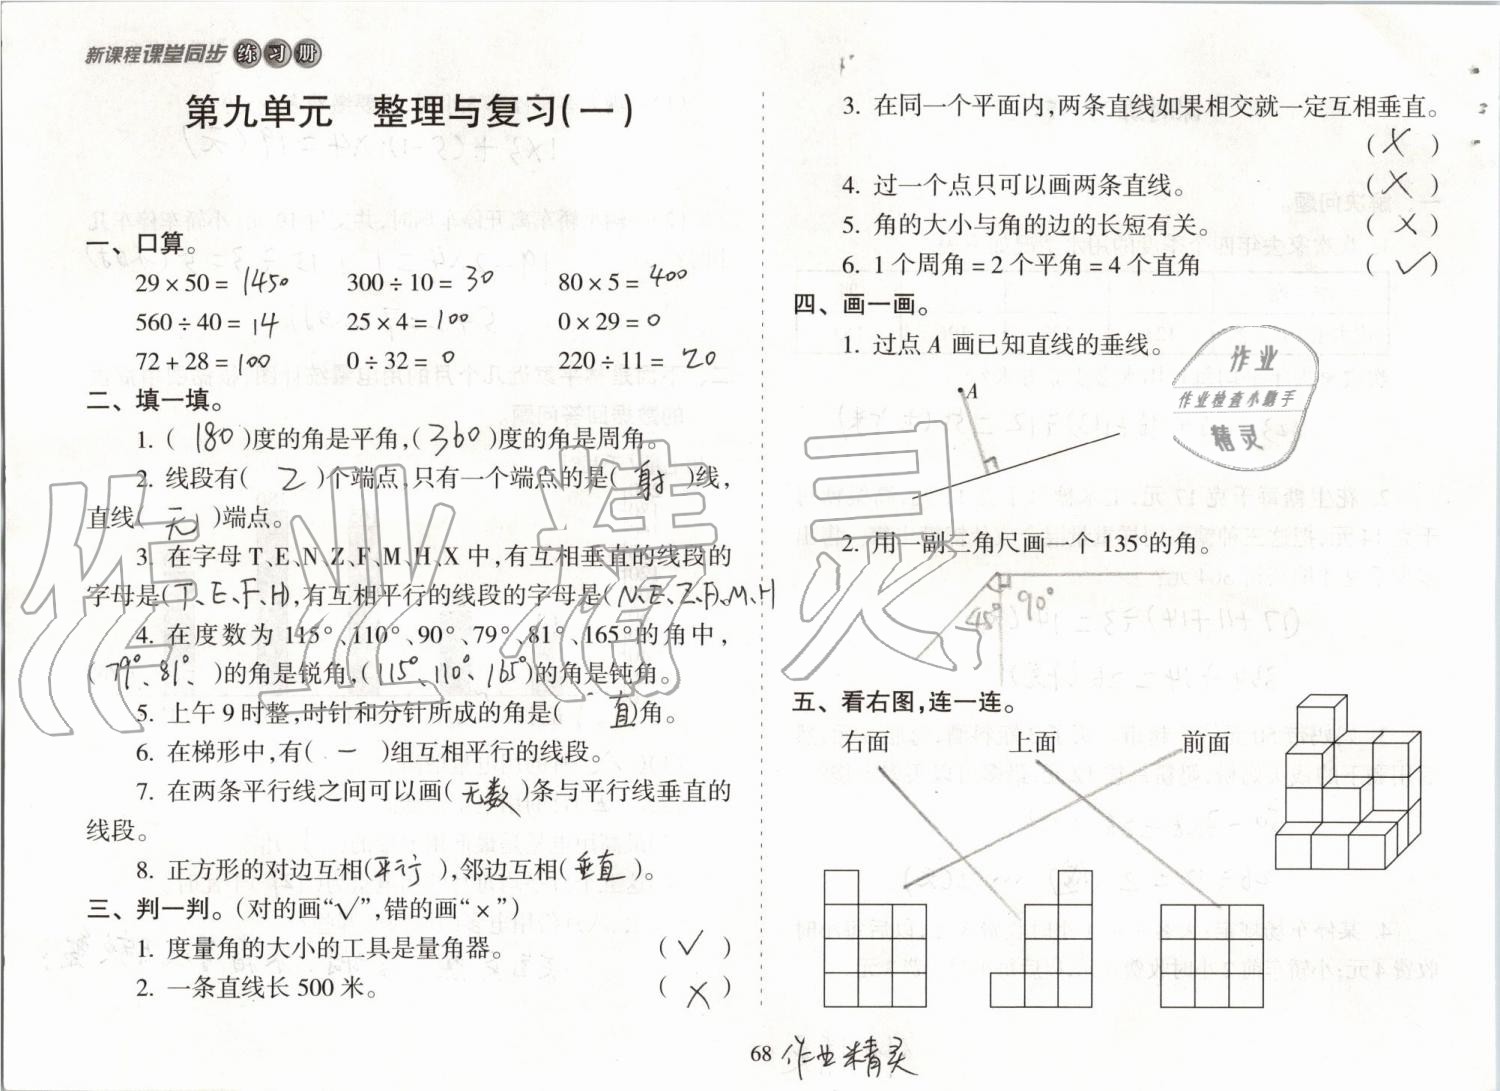 新课程课堂同步练习册
第九单元 整理与复习(一)
一、口算。
29×50= 1450 300÷10= 30 80×5= 400
560÷40= 14 25×4= 100 0×29= 0
72+28= 100 0÷32= 0 220÷11= 20
二、填一填。
1. ( 180 )度的角是平角,( 360 )度的角是周角。
2. 线段有( 2 )个端点,只有一个端点的是( 射 )线,
直线( 无 )端点。
3. 在字母 T、E、N、Z、F、M、H、X 中,有互相垂直的线段的
字母是(T、E、F、H),有互相平行的线段的字母是(N、E、Z、F、M、H
4. 在度数为 115°、110°、90°、79°、81°、165°的角中,
(79°、81°、 )的角是锐角,(115°、110°、165°)的角是钝角。
5. 上午 9 时整,时针和分针所成的角是( 直 )角。
6. 在梯形中,有( 一 )组互相平行的线段。
7. 在两条平行线之间可以画( 无数 )条与平行线垂直的
线段。
8. 正方形的对边互相(平行 ),邻边互相( 垂直 )。
三、判一判。(对的画“√”,错的画“×”)
1. 度量角的大小的工具是量角器。 ( √ )
2. 一条直线长 500 米。 ( × )
3. 在同一个平面内,两条直线如果相交就一定互相垂直。
( × )
4. 过一个点只可以画两条直线。 ( × )
5. 角的大小与角的边的长短有关。 ( × )
6. 1 个周角=2 个平角=4 个直角 ( √ )
四、画一画。
1. 过点 A 画已知直线的垂线。
A
2. 用一副三角尺画一个 135°的角。
45° 90°
五、看右图,连一连。
右面 上面 前面
68 作业精灵
作业
作业检查小助手
精灵
作业精灵